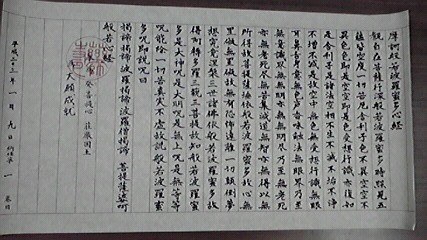 摩訶般若波羅蜜多心経
観自在菩薩行深般若波羅蜜多時照見五
蘊皆空度一切苦厄舎利子色不異空空不
異色色即是空空即是色受想行識亦復如
是舎利子是諸法空相不生不滅不垢不浄
不増不減是故空中無色無受想行識無眼
耳鼻舌身意無色声香味触法無眼界乃至
無意識界無無明亦無無明尽乃至無老死
亦無老死尽無苦集滅道無智亦無得以無
所得故菩提薩埵依般若波羅蜜多故心無
罣礙無罣礙故無有恐怖遠離一切顛倒夢
想究竟涅槃三世諸佛依般若波羅蜜多故
得阿耨多羅三藐三菩提故知般若波羅蜜
多是大神呪是大明呪是無上呪是無等等
呪能除一切苦真実不虚故説般若波羅蜜
多呪即説呪曰
掲諦掲諦波羅掲諦波羅僧掲諦 菩提薩婆訶
般若心経
発菩提心 荘厳国土
大願成就
平成二三年 一月 九日 一 巻目